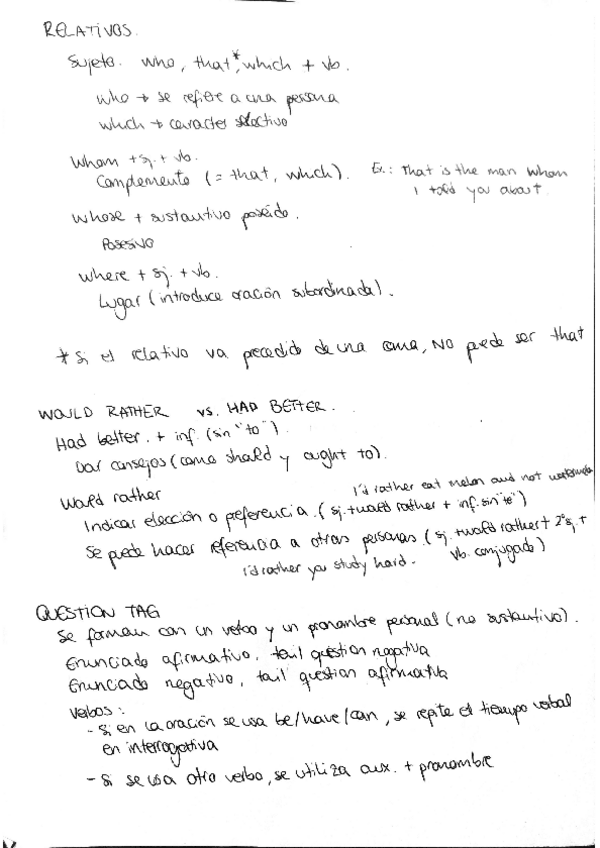 RELATIVOS.
Sujeto. who, that*, which + vb.
who → se refiere a una persona
which → caracter selectivo
Whom + sj. + vb.
Complemento (= that, which). Ex.: That is the man whom
I told you about.
whose + sustantivo poseído.
Posesivo
where + sj. + vb.
Lugar (introduce oración subordinada).
* Si el relativo va precedido de una coma, NO puede ser that
WOULD RATHER vs. HAD BETTER.
Had better. + inf. (sin "to").
Dar consejos (como should y ought to).
Would rather
I'd rather eat melon and not watermelon
Indicar elección o preferencia. (sj. + would rather + inf. sin "to")
Se puede hacer referencia a otras personas (sj. + would rather + 2º sj. +
I'd rather you study hard. vb. conjugado)
QUESTION TAG
Se forman con un verbo y un pronombre personal (no sustantivo).
Enunciado afirmativo, tail question negativa
Enunciado negativo, tail question afirmativa
Verbos:
- Si en la oración se usa be/have/can, se repite el tiempo verbal
en interrogativa
- Si se usa otro verbo, se utiliza aux. + pronombre